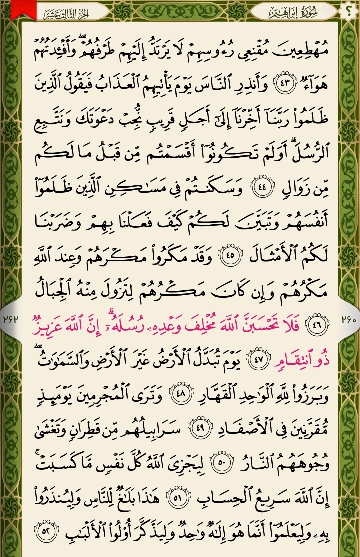 سُورَةُ إِبْرَاهِيمَ
الجزء الثالث عشر
مُهْطِعِينَ مُقْنِعِي رُءُوسِهِمْ لَا يَرْتَدُّ إِلَيْهِمْ طَرْفُهُمْ ۖ وَأَفْئِدَتُهُمْ
هَوَاءٌ ﴿٤٣﴾ وَأَنذِرِ النَّاسَ يَوْمَ يَأْتِيهِمُ الْعَذَابُ فَيَقُولُ الَّذِينَ
ظَلَمُوا رَبَّنَا أَخِّرْنَا إِلَىٰ أَجَلٍ قَرِيبٍ نُّجِبْ دَعْوَتَكَ وَنَتَّبِعِ
الرُّسُلَ ۗ أَوَلَمْ تَكُونُوا أَقْسَمْتُم مِّن قَبْلُ مَا لَكُم
مِّن زَوَالٍ ﴿٤٤﴾ وَسَكَنتُمْ فِي مَسَاكِنِ الَّذِينَ ظَلَمُوا
أَنفُسَهُمْ وَتَبَيَّنَ لَكُمْ كَيْفَ فَعَلْنَا بِهِمْ وَضَرَبْنَا
لَكُمُ الْأَمْثَالَ ﴿٤٥﴾ وَقَدْ مَكَرُوا مَكْرَهُمْ وَعِندَ اللَّهِ
مَكْرُهُمْ وَإِن كَانَ مَكْرُهُمْ لِتَزُولَ مِنْهُ الْجِبَالُ
﴿٤٦﴾ فَلَا تَحْسَبَنَّ اللَّهَ مُخْلِفَ وَعْدِهِ رُسُلَهُ ۗ إِنَّ اللَّهَ عَزِيزٌ
ذُو انتِقَامٍ ﴿٤٧﴾ يَوْمَ تُبَدَّلُ الْأَرْضُ غَيْرَ الْأَرْضِ وَالسَّمَاوَاتُ ۖ
وَبَرَزُوا لِلَّهِ الْوَاحِدِ الْقَهَّارِ ﴿٤٨﴾ وَتَرَى الْمُجْرِمِينَ يَوْمَئِذٍ
مُّقَرَّنِينَ فِي الْأَصْفَادِ ﴿٤٩﴾ سَرَابِيلُهُم مِّن قَطِرَانٍ وَتَغْشَىٰ
وُجُوهَهُمُ النَّارُ ﴿٥٠﴾ لِيَجْزِيَ اللَّهُ كُلَّ نَفْسٍ مَّا كَسَبَتْ ۚ
إِنَّ اللَّهَ سَرِيعُ الْحِسَابِ ﴿٥١﴾ هَٰذَا بَلَاغٌ لِّلنَّاسِ وَلِيُنذَرُوا
بِهِ وَلِيَعْلَمُوا أَنَّمَا هُوَ إِلَٰهٌ وَاحِدٌ وَلِيَذَّكَّرَ أُولُو الْأَلْبَابِ ﴿٥٢﴾
٢٦٠
٢٦٢